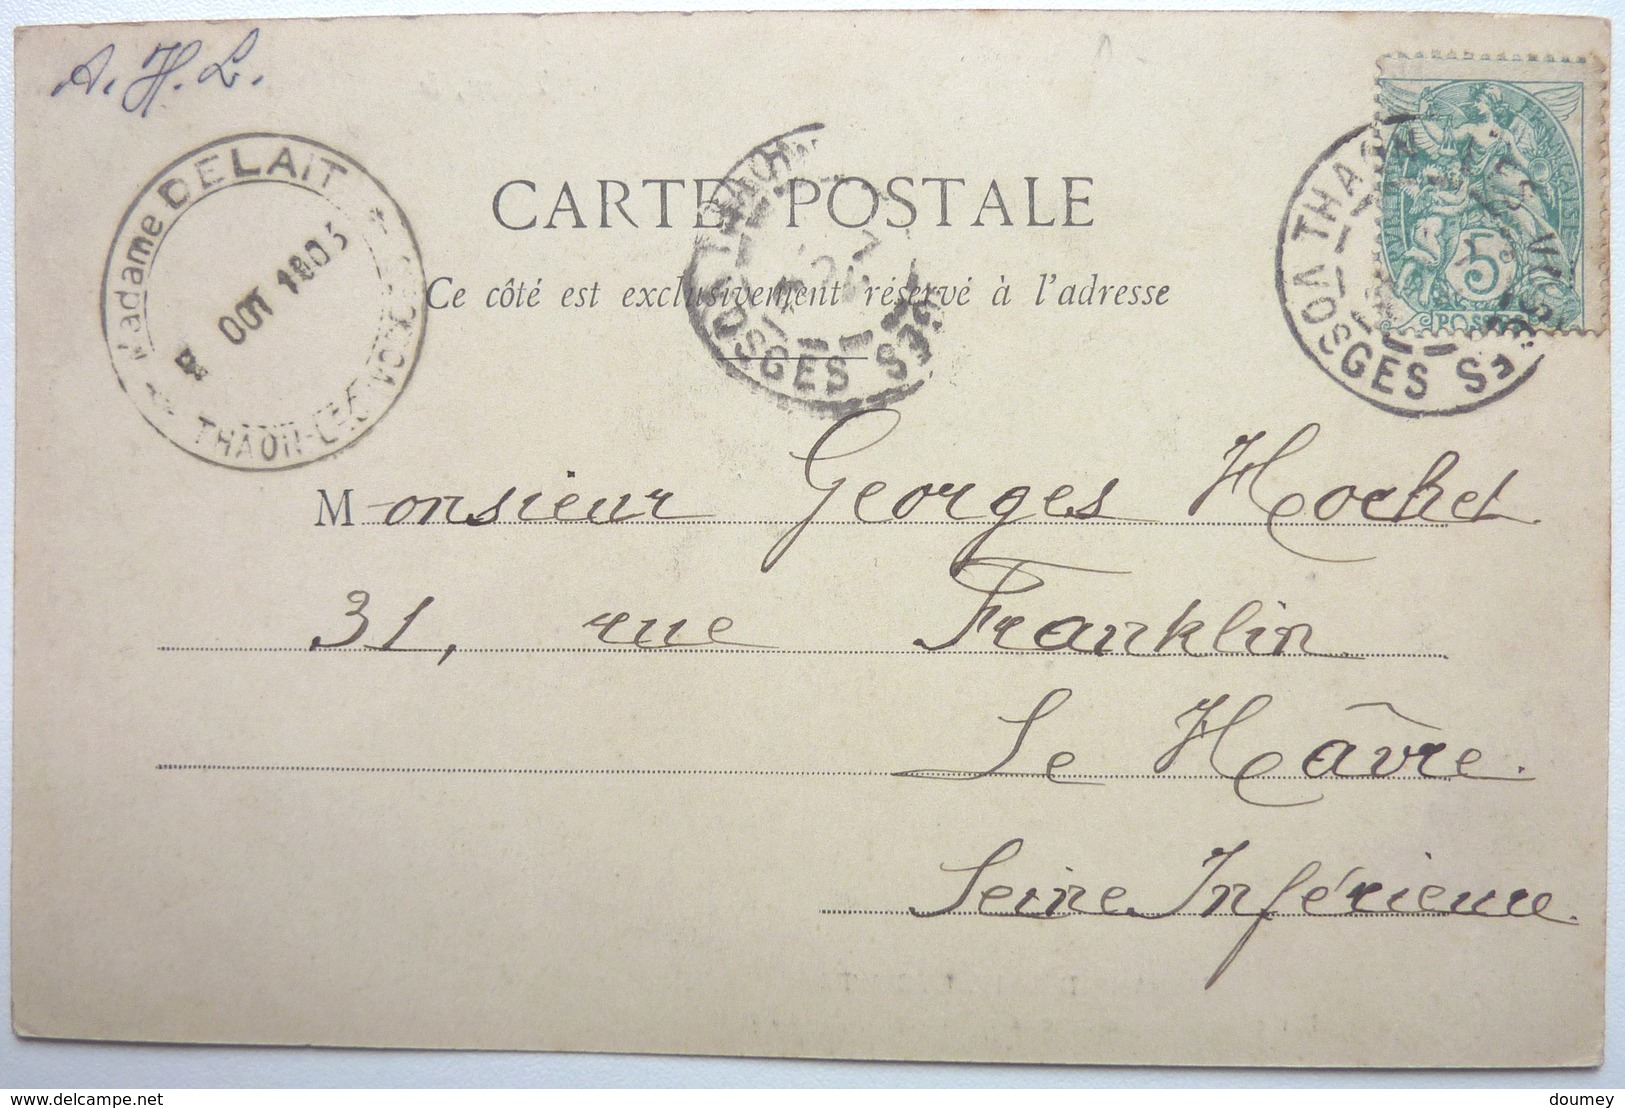 A. H. L.
Madame DELAIT
OCT 1903
THAON-LES-VOSGES
CARTE POSTALE
Ce côté est exclusivement réservé à l'adresse
THAON
VOSGES
THAON
VOSGES
5
POSTES
Monsieur Georges Hochet
31, rue Franklin
Le Hâvre.
Seine Inférieure.
www.delcampe.net
doumey